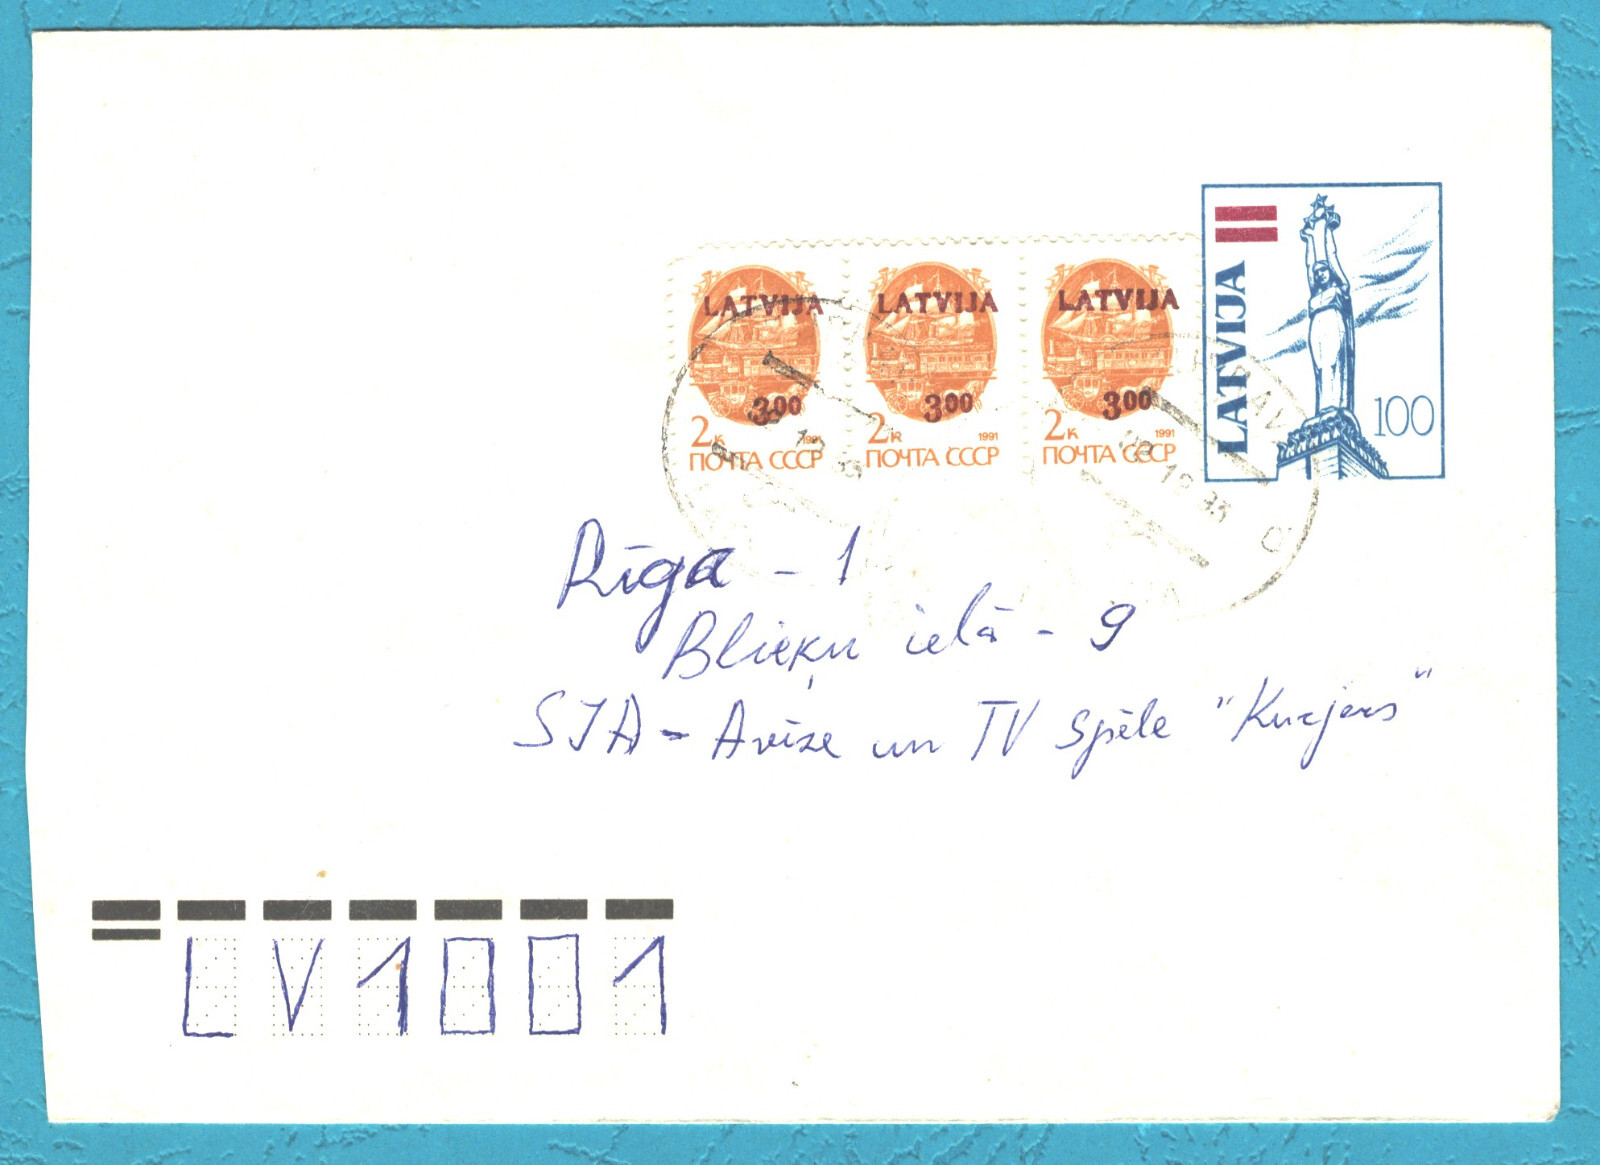 LATVIJA
100
LATVIJA
3.00
2к 1991
ПОЧТА СССР
LATVIJA
3.00
2к 1991
ПОЧТА СССР
LATVIJA
3.00
2к 1991
ПОЧТА СССР
Rīga - 1
Blieķu ielā - 9
SIA - Avīze un TV spēle "Kurjers"
LV1001